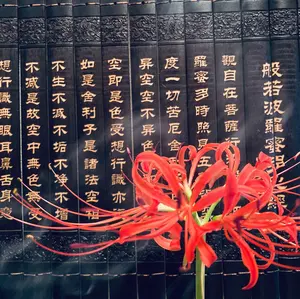 般若波羅蜜
觀自在菩薩行
羅蜜多時照見五
度一切苦厄舍
異空空不異色
空即是色受想行識亦
如是舍利子是諸法空相
不生不滅不垢不淨不增
不減是故空中無色無受
想行識無眼耳鼻舌身